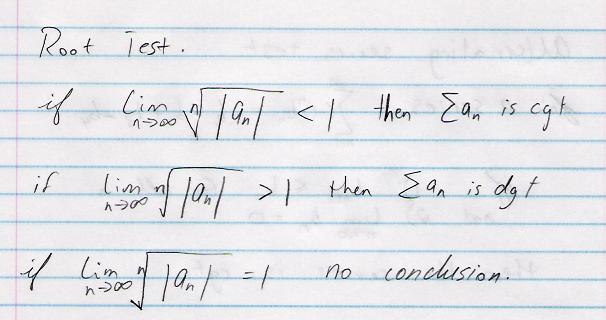 Root Test.
if lim n→∞ ⁿ√|aₙ| < 1 then Σaₙ is cgt
if lim n→∞ ⁿ√|aₙ| > 1 then Σaₙ is dgt
if lim n→∞ ⁿ√|aₙ| = 1 no conclusion.